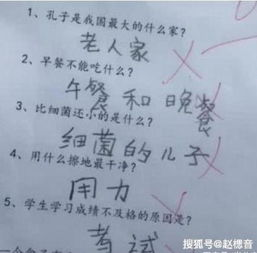 1、孔子是我国最大的什么家?
老人家
2、早餐不能吃什么?
午餐 和 晚餐
3、比细菌还小的是什么?
细菌的儿子
4、用什么擦地最干净?
用力
5、学生学习成绩不及格的原因是?
考试
搜狐号@赵楒音